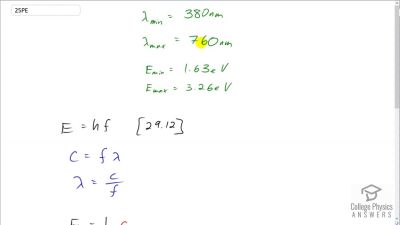 25PE
λmin = 380nm
λmax = 760nm
Emin = 1.63eV
Emax = 3.26eV
E = hf [29.12]
c = fλ
λ = c/f
College Physics
ANSWERS